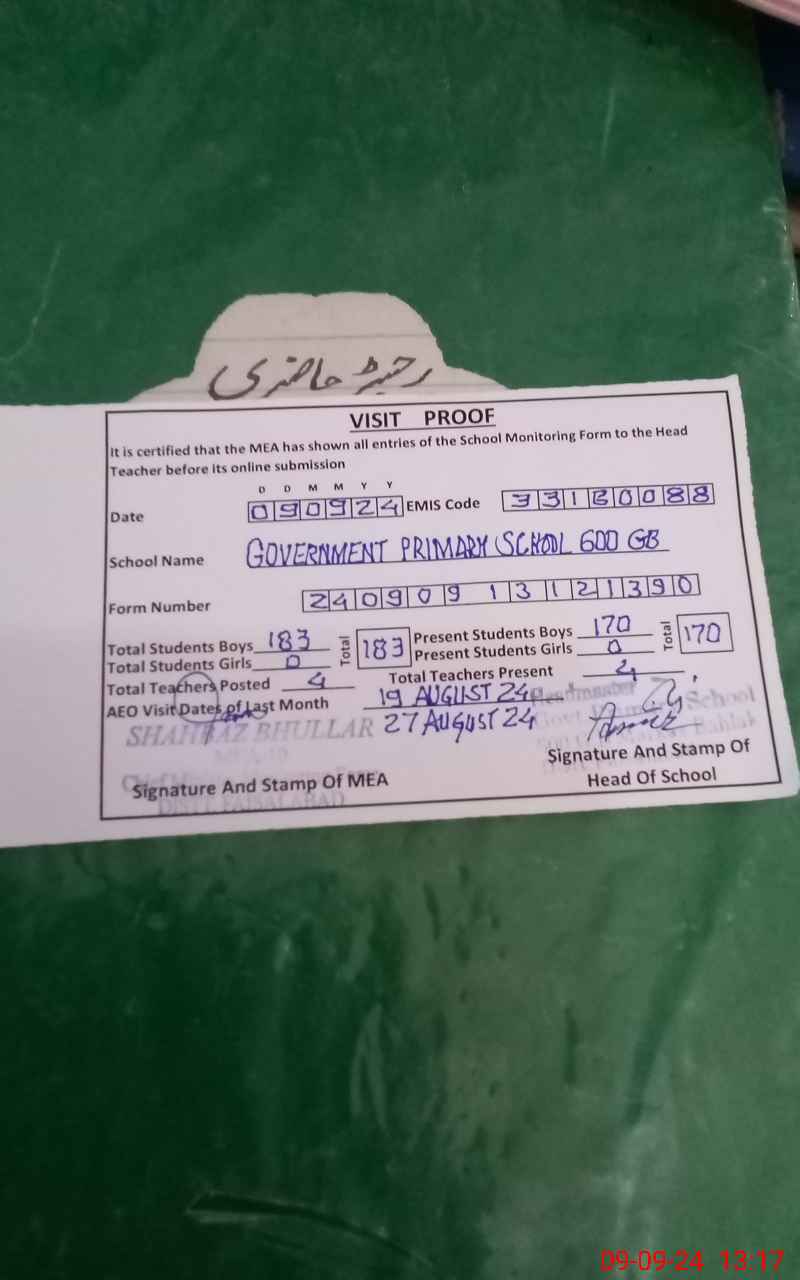 رجسٹر حاضری
VISIT PROOF
It is certified that the MEA has shown all entries of the School Monitoring Form to the Head
Teacher before its online submission
D D M M Y Y
Date 090924 EMIS Code 33160088
School Name GOVERNMENT PRIMARY SCHOOL 600 GB
Form Number 24090913121390
Total Students Boys 183 Total 183 Present Students Boys 170 Total 170
Total Students Girls 0 Present Students Girls 0
Total Teachers Posted 4 Total Teachers Present 4
AEO Visit Dates of Last Month 19 AUGUST 24
27 AUGUST 24
SHAHBAZ BHULLAR
Headmaster
School
Signature And Stamp Of MEA
DISTT. FAISALABAD
Signature And Stamp Of
Head Of School
09-09-24 13:17